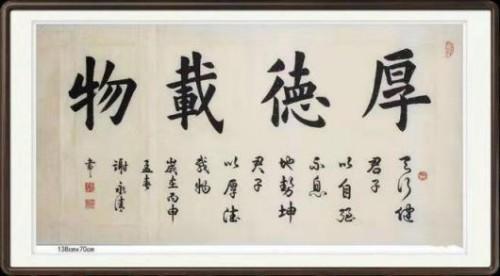 厚德載物
天行健
君子
以自强
不息
地勢坤
君子
以厚德
載物
歲在丙申
孟春
謝永清
138cm×70cm